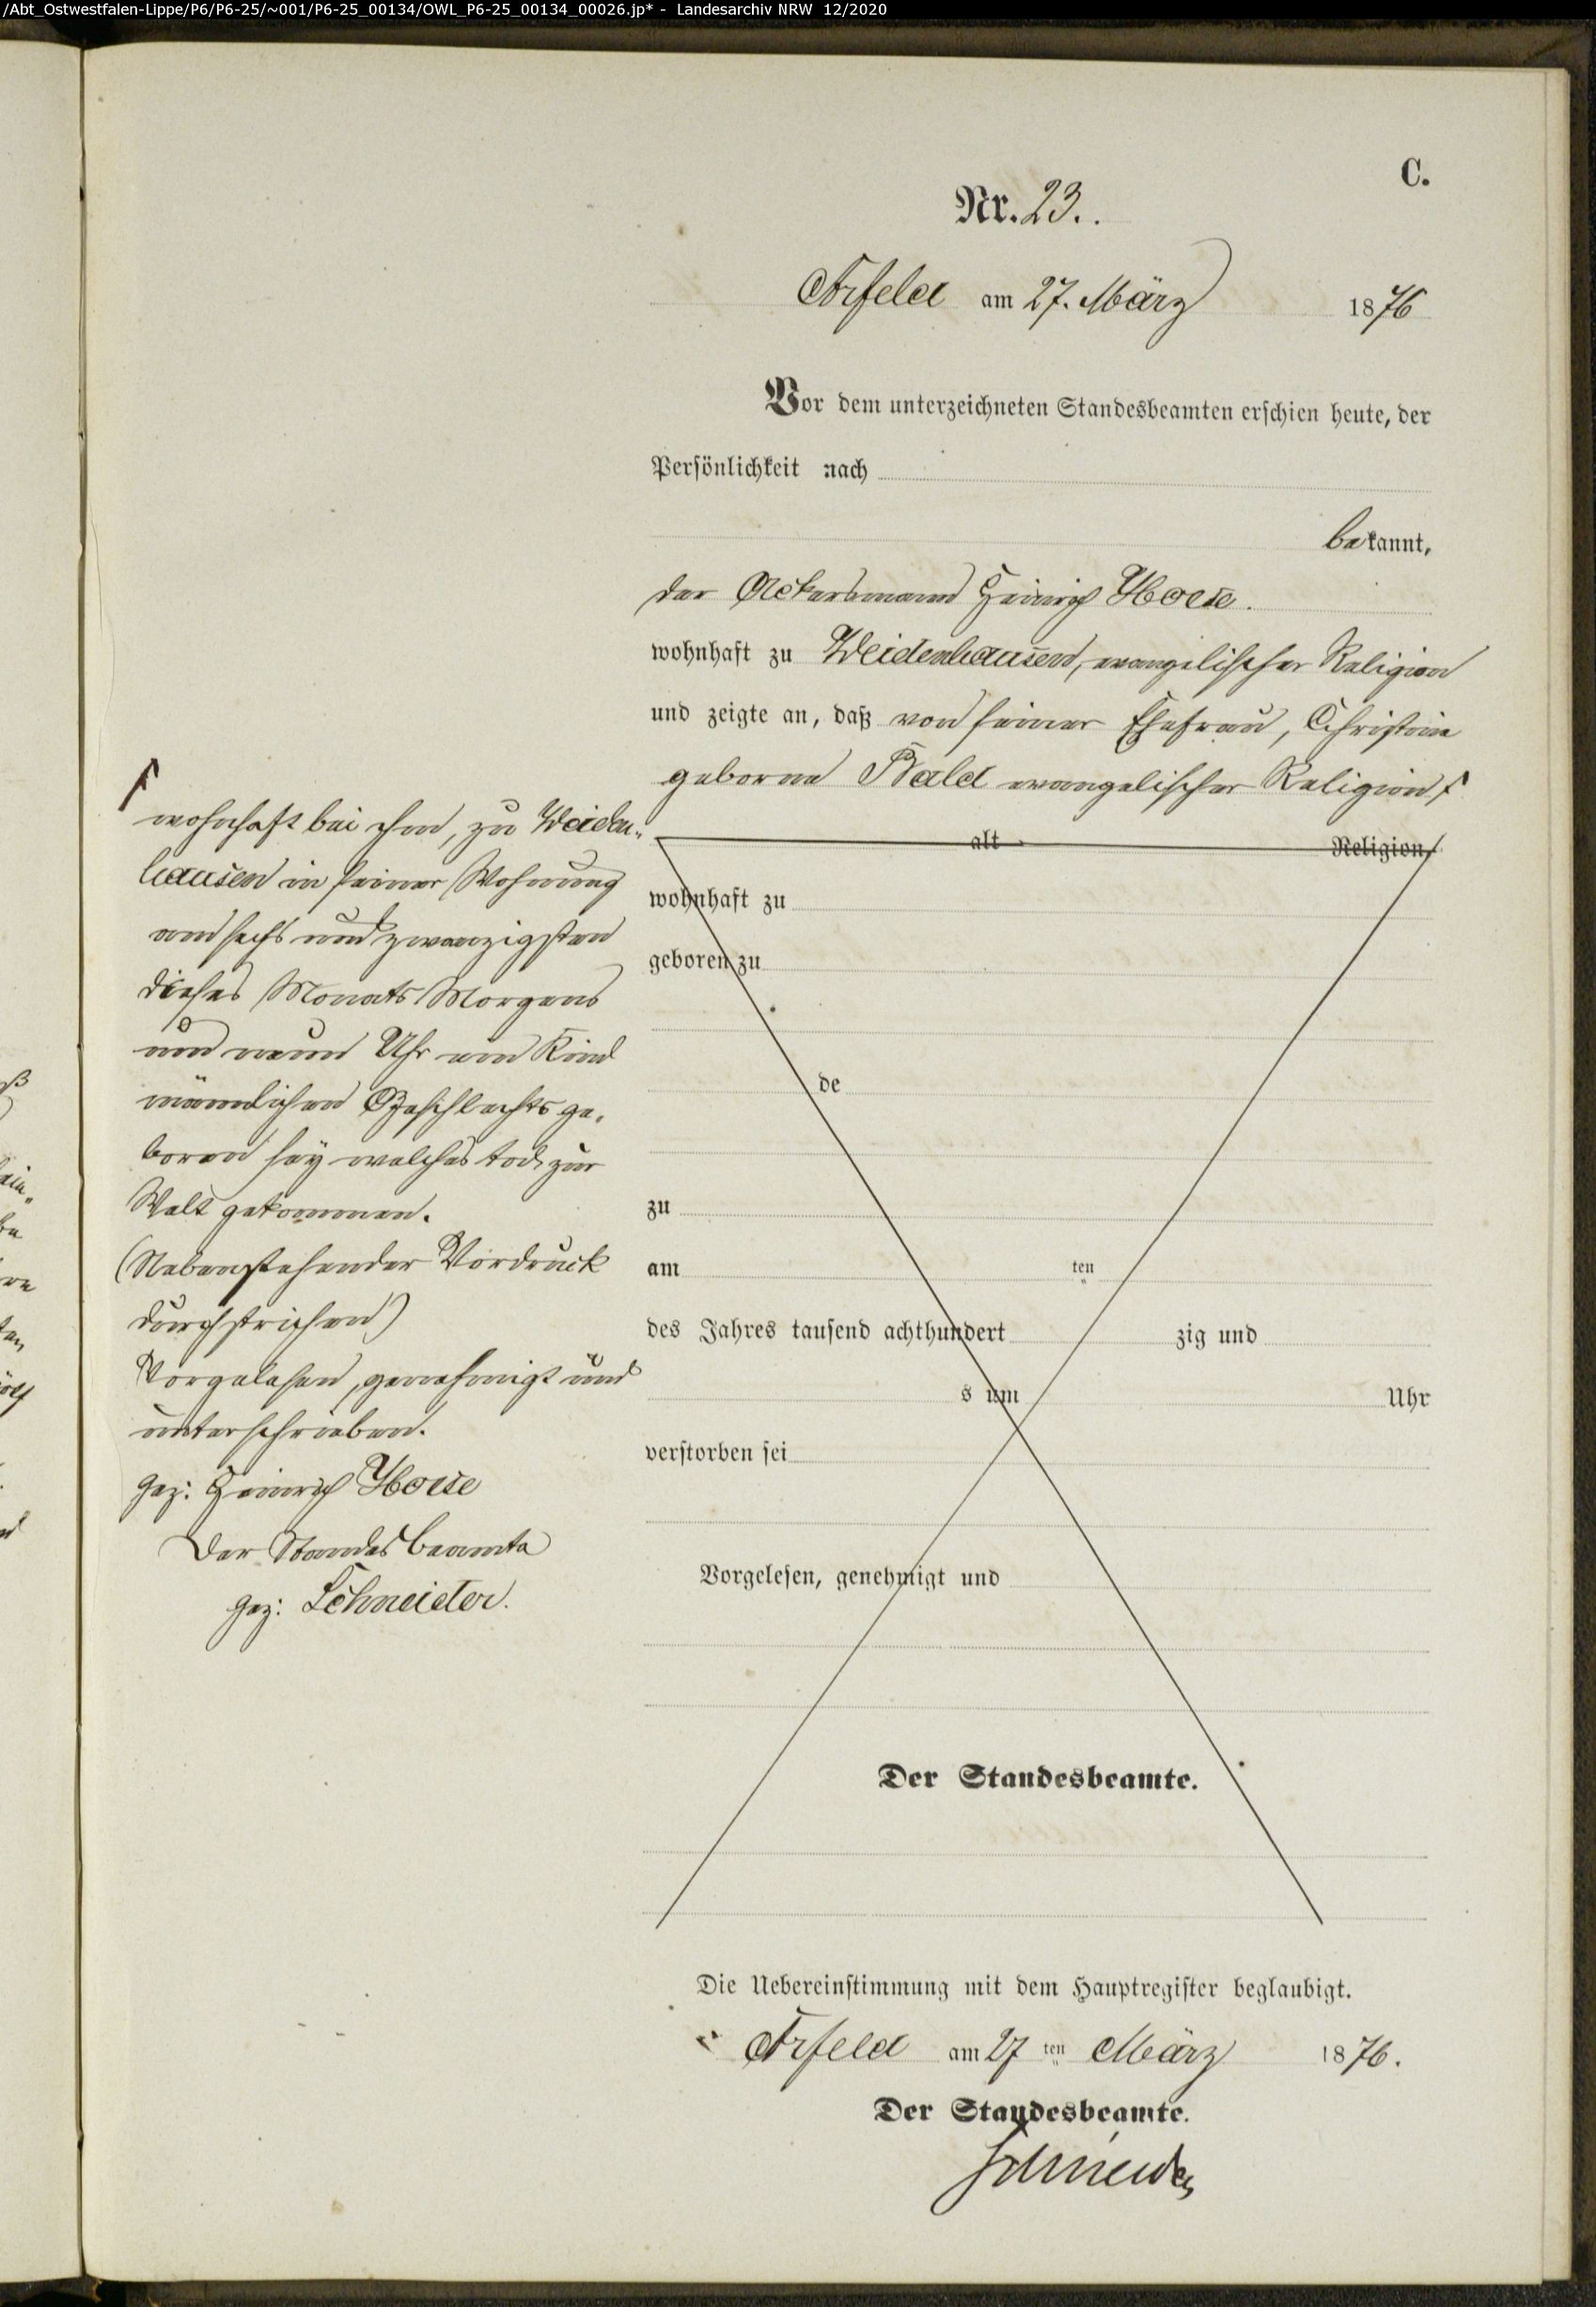 /Abt_Ostwestfalen-Lippe/P6/P6-25/~001/P6-25_00134/OWL_P6-25_00134_00026.jp* - Landesarchiv NRW 12/2020
C.
Nr. 23.
Arfeld am 27. März 1876
Vor dem unterzeichneten Standesbeamten erschien heute, der
Persönlichkeit nach
bekannt,
der Ackersmann Heinrich Hoese.
wohnhaft zu Weidenhausen, evangelischer Religion
und zeigte an, daß von seiner Ehefrau, Christine
geborne Bald evangelischer Religion ſ
ſ
wohnhaft bei ihm, zu Weiden-
hausen in seiner Wohnung
am sechs und zwanzigsten
dieses Monats Morgens
um neun Uhr ein Kind
männlichen Geschlechts ge-
boren sey welches tod zur
Welt gekommen.
(Nebenstehender Vordruck
durchstrichen)
Vorgelesen, genehmigt und
unterschrieben.
gez: Heinrich Hoese
Der Standesbeamte
gez: Schneider.
alt Religion,
wohnhaft zu
geboren zu
de
zu
am ten
des Jahres tausend achthundert zig und
s um Uhr
verstorben sei
Vorgelesen, genehmigt und
Der Standesbeamte.
Die Uebereinstimmung mit dem Hauptregister beglaubigt.
Arfeld am 27 ten März 1876.
Der Standesbeamte.
Schneider